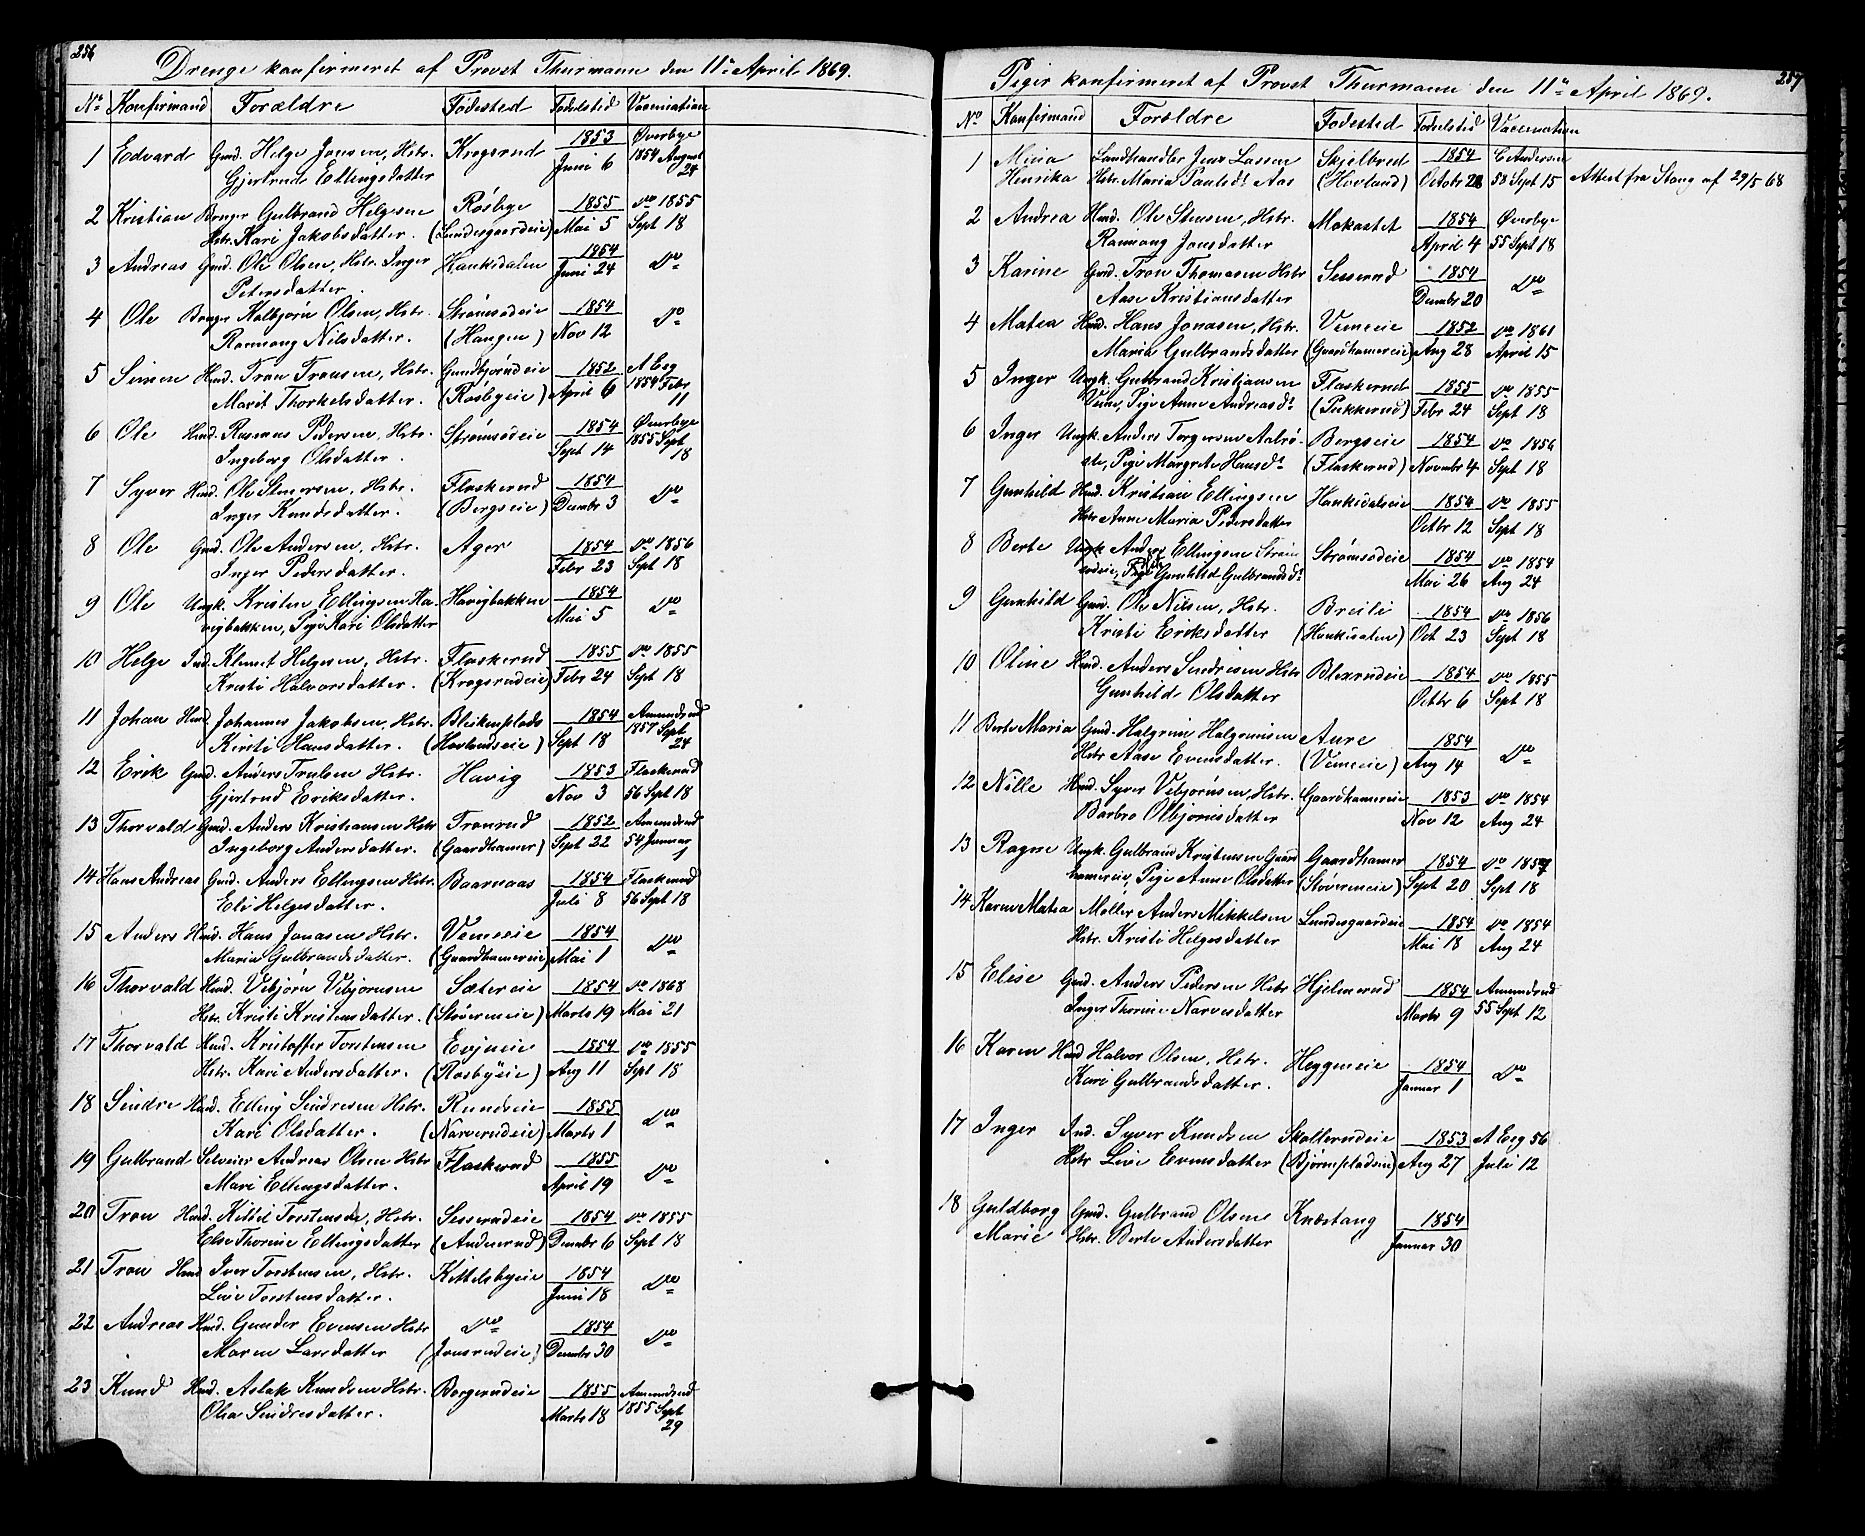 256
Drenge konfirmeret af Provst Thurmann den 11te April 1869.
No Konfirmand Forældre Fødested Fødselstid Vaccination
1 Edvard Gmd. Helge Jonsen, Hstr. Krogsrud 1853 Øverbye
Gjertrud Ellingsdatter Juni 6 1854 August 24
2 Kristian Bruger Gulbrand Helgesen Røsbye 1855 do 1855
Hstr. Kari Jakobsdatter. (Lundesgaardeie) Mai 5 Sept 18
3 Andreas Gmd. Ole Olsen, Hstr. Inger Hanksdalen 1854 do
Petersdatter Juni 24
4 Ole Bruger Kolbjørn Olsen, Hstr. Strømsodeie 1854 do
Ranmong Nilsdatter. (Haugen) Nov 12
5 Simen Hmd. Tron Tronsen, Hstr. 1852 A Eeg
Marit Thorkelsdatter. (Røsbyeie) April 6 1854 Febr 11
6 Ole Hmd. Rasmus Pedersen, Hstr. Strømsodeie 1854 Øverbye
Ingeborg Olsdatter. Sept 14 1855 Sept 18
7 Syver Hmd. Ole Stenersen, Hstr. Flaskerud 1854 do
Inger Knudsdatter. (Bergseie) Decmbr 3
8 Ole Gmd. Ole Andersen, Hstr. Ager 1854 do 1856
Inger Pedersdatter. Febr 23 Sept 18
9 Ole Ungk. Kristen Ellingsen Ha- Havigbakken 1854 do
vigbakken, Pige Kari Olsdatter Mai 5
10 Helge Ind. Klemet Helgesen, Hstr. Flaskerud 1855 do 1855
Kristi Halvorsdatter. (Krogsrudeie) Febr 24 Sept 18
11 Johan Hmd. Johannes Jakobsen, Hstr. Bleikenplads 1854 Amundrud
Kirsti Hansdatter. (Hovlandseie) Sept 18 1857 Sept 24
12 Erik Gmd. Anders Trulsen Hstr. Havig 1853 Flaskerud
Gjertrud Eriksdatter. Nov 3 56 Sept 18
13 Thorvald Gmd. Anders Kristiansen Hstr Tronrud 1852 Amundrud
Ingeborg Andersdatter. (Gaardhamer) Sept 22 54 Januar
14 Hans Andreas Gmd. Anders Ellingsen Hstr. Baarnaas 1854 Flaskerud
Eli Helgesdatter. Juli 8 56 Sept 18
15 Anders Hmd. Hans Jonasen Hstr. Vemeeie 1854 do
Maria Gulbrandsdatter. (Gaardhamereie) Mai 1
16 Thorvald Hmd. Vebjørn Vebjørnsen Sætereie 1854 do 1868
Hstr. Kristi Kristensdatter. (Støvereneie) Marts 19 Mai 21
17 Thorvald Hmd. Kristoffer Torstensen Evjueie 1854 do 1855
Hstr. Kari Andersdatter. (Røsbyeie) Aug 11 Sept 18
18 Sindre Hmd. Elling Sindresen Hstr. Rundseie 1855 do
Kari Olsdatter. (Narverudeie) Marts 1
19 Gulbrand Selveier Andreas Olsen Hstr Flaskerud 1855 do
Mari Ellingsdatter. April 19
20 Tron Hmd. Kittil Torstensen, Hstr. Sesserudeie 1854 do 1855
Else Thorine Ellingsdatter (Anderud) Decmbr 6 Sept 18
21 Tron Hmd Iver Torstensen, Hstr. Kittelsbyeie 1854 do
Live Torstensdatter. Juni 18
22 Andreas Hmd. Gunder Evensen Hstr do 1854 do
Maren Larsdatter (Jonsrudeie) Decmbr 30
23 Knud Hmd. Aslak Knudsen Hstr. Borgerudeie 1855 Amundrud
Olea Sindresdatter. Marts 18 1855 Sept 29
257
Piger konfirmeret af Provst Thurmann den 11te April 1869.
No Konfirmand Forældre Fødested Fødselstid Vaccination
1 Mina Landhandler Jens Larsen Skjelbred 1854 C Andersen
Henrika Hstr. Maria Paulsdr Aas (Hovland) Octobr 28 58 Sept 15 Attest fra Stang af 29/5 68
2 Andrea Hmd. Ole Stensen, Hstr. Mokastet 1854 Øverbye
Ranmong Jonsdatter April 4 55 Sept 18
3 Karine Gmd. Tron Thomasen Hstr Sesserud 1854 do
Aase Kristiansdatter Decmbr 20
4 Matea Hmd. Hans Jonasen, Hstr. Vemeeie 1852 do 1861
Maria Gulbrandsdatter (Gaardhamereie) Aug 28 April 15
5 Inger Ungk. Gulbrand Kristiansen Flaskerud 1855 do 1855
Veme, Pige Anne Andreasdr (Pukkerud) Febr 24 Sept 18
6 Inger Ungk. Anders Torgersen Aalrø- Bergseie 1854 do 1856
ste, Pige Margrete Hansdr (Flaskerud) Novmbr 4 Sept 18
7 Gunhild Hmd. Kristian Ellingsen Hanksdalseie 1854 do 1855
Hstr Anne Maria Pedersdatter Octbr 12 Sept 18
8 Berte Ungk. Anders Ellingsen Strøm- Strømsodeie 1854 do 1854
sodeie, Pige Gunhild Gulbrandsdr Mai 26 Aug 24
9 Gunhild Gmd. Ole Nilsen, Hstr. Breili 1854 do 1856
Kristi Eriksdatter (Hanksdalen) Oct 23 Sept 18
10 Oline Hmd. Anders Sindresen Hstr Blexrudeie 1854 do 1855
Gunhild Olsdatter Octbr 6 Sept 18
11 Berte Maria Gmd. Halgrim Halgrimsen Aure 1854 do
Hstr Aase Evensdatter. (Vemeeie) Aug 14
12 Nille Hmd. Syver Vebjørnsen, Hstr. Gaardhamereie 1853 do 1854
Barbro Olbjørnsdatter Nov 12 Aug 24
13 Ragne Ungk. Gulbrand Kristensen Gaard Gaardhamer 1854 do 1857
hamereie, Pige Anne Olsdatter (Støvereneie) Sept 20 Sept 18
14 Karen Matea Møller Anders Mikkelsen Lundesgaardeie 1854 do 1854
Hstr. Kristi Helgesdatter Mai 18 Aug 24
15 Elise Gmd. Anders Pedersen Hstr Hjelmerud 1854 Amundrud
Inger Thorine Narvesdatter Marts 9 55 Sept 12
16 Karen Hmd Halvor Olsen, Hstr. Heggeneie 1854 do
Kari Gulbrandsdatter. Januar 1
17 Inger Ind. Syver Knudsen Skollerudeie 1853 A Eeg 56
Hstr Live Evensdatter (Bjørnpladsen) Aug 27 Juli 12
18 Guldborg Gmd. Gulbrand Olsen Knæstang 1854
Marie Hstr. Berte Andersdatter Januar 30